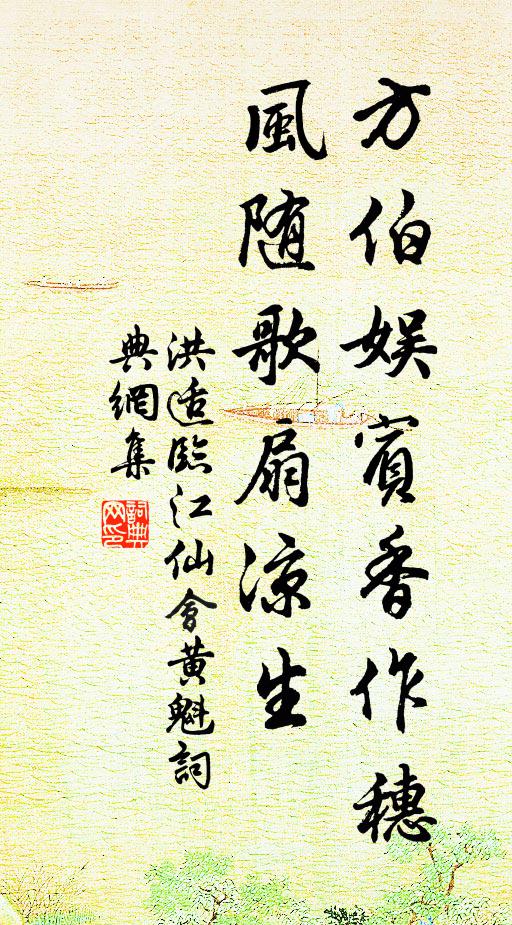 方伯娱賓香作穗
風随歌扇凉生
洪适臨江仙會黄魁詞
典網集
詞典網印